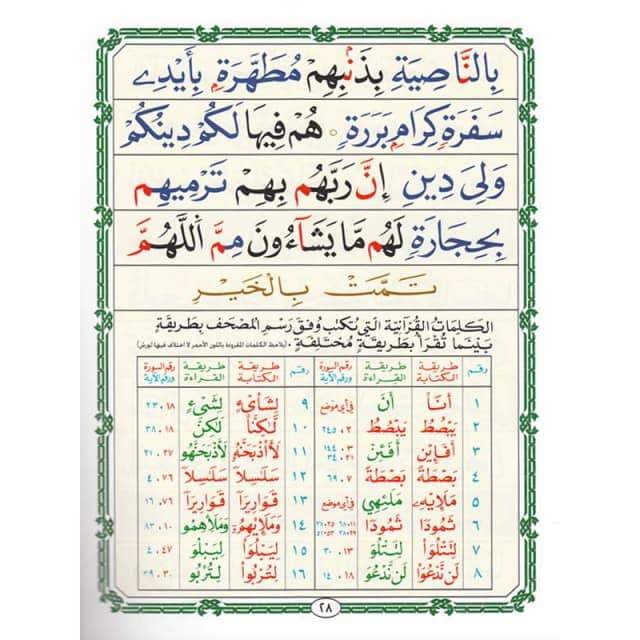 بِالنَّاصِيَةِ بِذَنْبِهِمْ مُطَهَّرَةٍ بِأَيْدِے
سَفَرَةٍ كِرَامٍ بَرَرَةٍ ۝ هُمْ فِيهَا لَكُمْ دِينُكُمْ
وَلِىَ دِينِ إِنَّ رَبَّهُم بِهِمْ تَرْمِيهِم
بِحِجَارَةٍ لَهُم مَا يَشَآءُونَ مِمَّ اَللَّهُمَّ
تَمَّتْ بِالْخَيْرِ
الكَلِمَاتُ القُرْآنِيَّة الَّتِي تُكْتَبُ وُفْقَ رَسْمِ المُصْحَف بِطَرِيقَةٍ
بَيْنَمَا تُقْرَأُ بِطَرِيقَةٍ مُخْتَلِفَةٍ
رقم طريقة الكتابة طريقة القراءة رقم السورة ورقم الآية رقم طريقة الكتابة طريقة القراءة رقم السورة ورقم الآية
١ أَنَا أَنَ في أي موضع ٩ لِشَاْىْءٍ لِشَىْءٍ ١٨، ٢٣
٢ يَبْصُطُ يَبْسُطُ ٢، ٢٤٥ ١٠ لَكِنَّا لَكِنَّ ١٨، ٣٨
٣ أَفَإِيْن أَفَئِن ٣، ١٤٤ ٢١، ٣٤ ١١ لَأَاْذْبَحَنَّهُ لَأَذْبَحَنَّهُو ٢٧، ٢١
٤ بَصْطَةً بَصْطَةً ٧، ٦٩ ١٢ سَلَسِلَاْ سَلَسِلَا ٧٦، ٤
٥ مَلَإِيْهِ مَلَئِهِي في أي موضع ١٣ قَوَارِيرَاْ قَوَارِيرَا ٧٦، ١٦
٦ ثَمُودَاْ ثَمُودَا ١٤ وَمَلَإِيْهِمُ وَمَلَاهِمُو ١٠، ٨٣
٧ لِتَتْلُوَاْ لِتَتْلُوَ ١٣، ٣٠ ١٥ لِيَبْلُوَاْ لِيَبْلُوَ ٤٧، ٤
٨ لَن نَدْعُوَاْ لَن نَدْعُوَ ١٨، ١٤ ١٦ لِتُرْبُواْ لِتُرْبُو ٣٠، ٣٩
٢٨